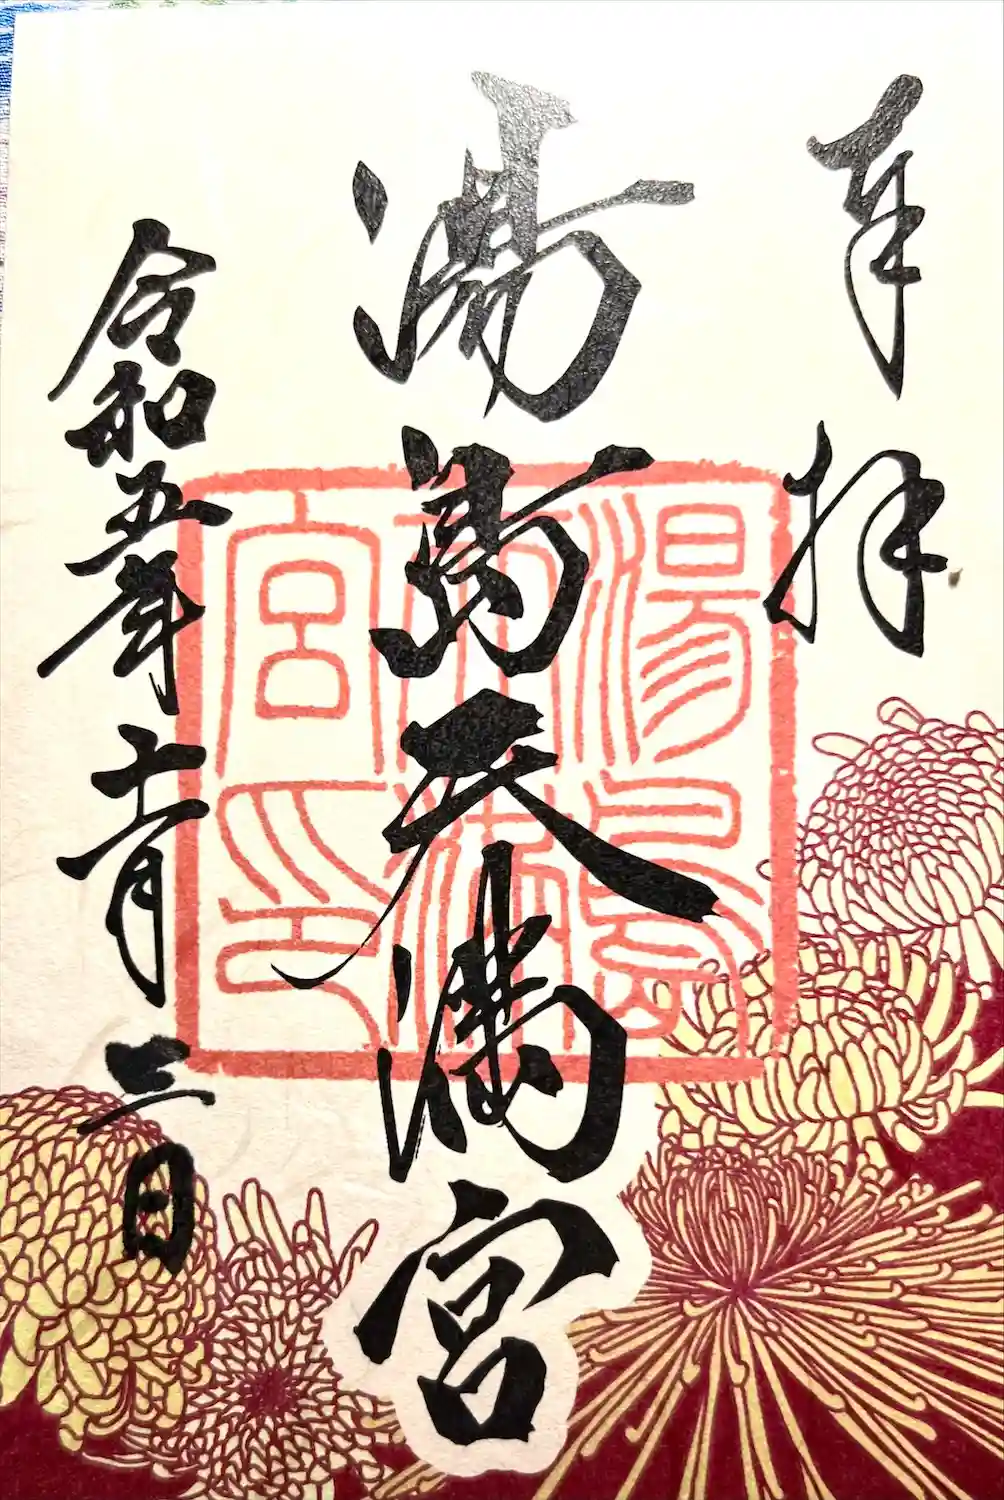 奉拝
湯島天満宮
令和五年十一月三日
湯島
天満
宮印